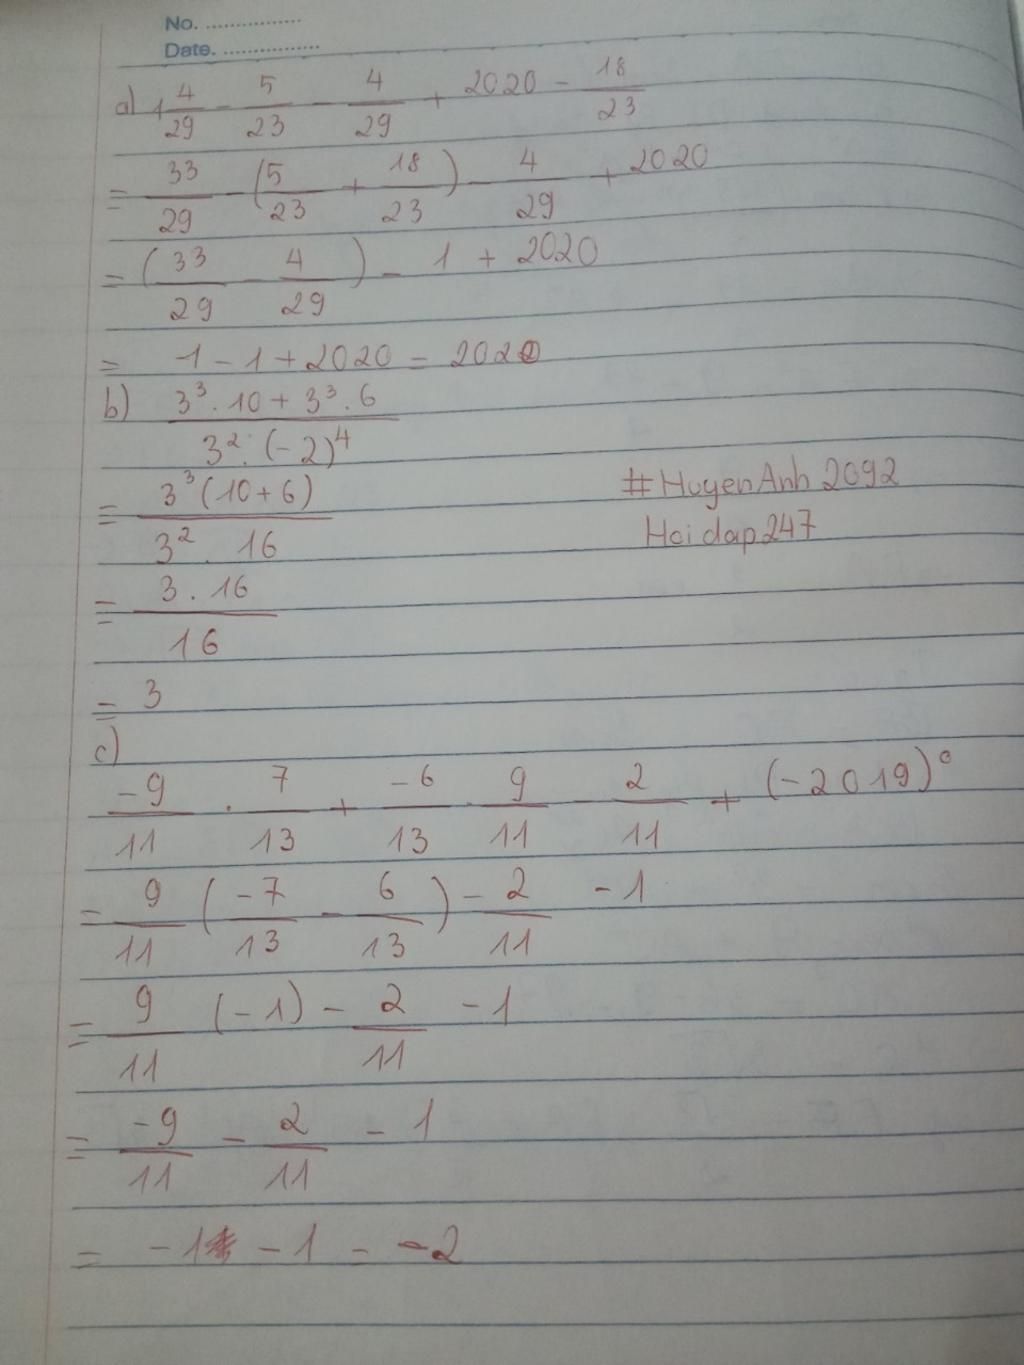 No. ................
Date. ................
a) 1 4/29 - 5/23 - 4/29 + 2020 - 18/23
= 33/29 - (5/23 + 18/23) - 4/29 + 2020
= (33/29 - 4/29) - 1 + 2020
= 1 - 1 + 2020 = 2020
b) (3³ . 10 + 3³ . 6)/(3² . (-2)⁴)
= 3³(10 + 6)/(3² . 16)
#HuyenAnh 2092
Hoidap247
= (3 . 16)/16
= 3
c)
-9/11 . 7/13 + -6/13 . 9/11 - 2/11 + (-2019)⁰
= 9/11 (-7/13 - 6/13) - 2/11 - 1
= 9/11 (-1) - 2/11 - 1
= -9/11 - 2/11 - 1
= -1 - 1 = -2